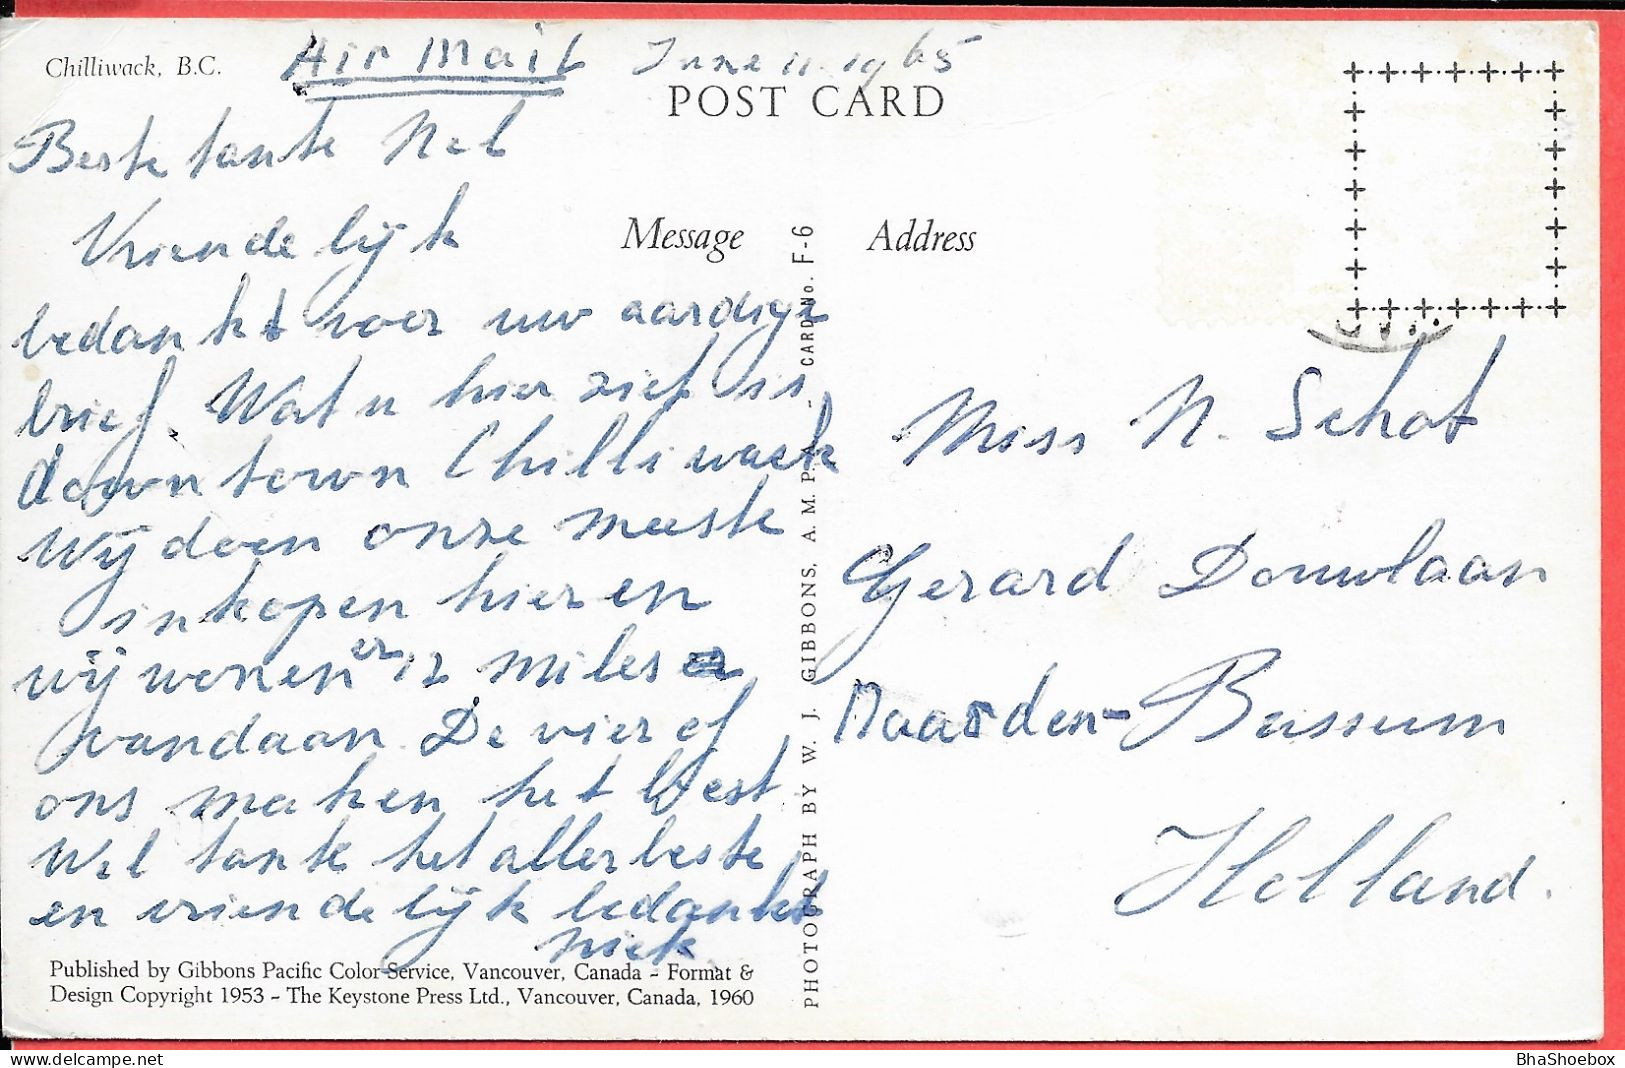 Chilliwack, B.C.
Air Mail June 11 1965
POST CARD
Beste tante Nel
Vriendelijk
bedankt voor uw aardige
brief. Wat u hier ziet is
down town Chilliwack
Wij doen onze meeste
inkopen hier en
wij wonen er 12 miles
vandaan. De vier of
ons maken het best
Wel tante het allerbeste
en vriendelijk bedankt
Niek
Message
Published by Gibbons Pacific Color Service, Vancouver, Canada - Format &
Design Copyright 1953 - The Keystone Press Ltd., Vancouver, Canada, 1960
PHOTOGRAPH BY W. J. GIBBONS, A. M. P. A. - CARD No. F-6
Address
Miss N. Schot
Gerard Douwlaan
Naarden-Bussum
Holland.
BhaShoebox